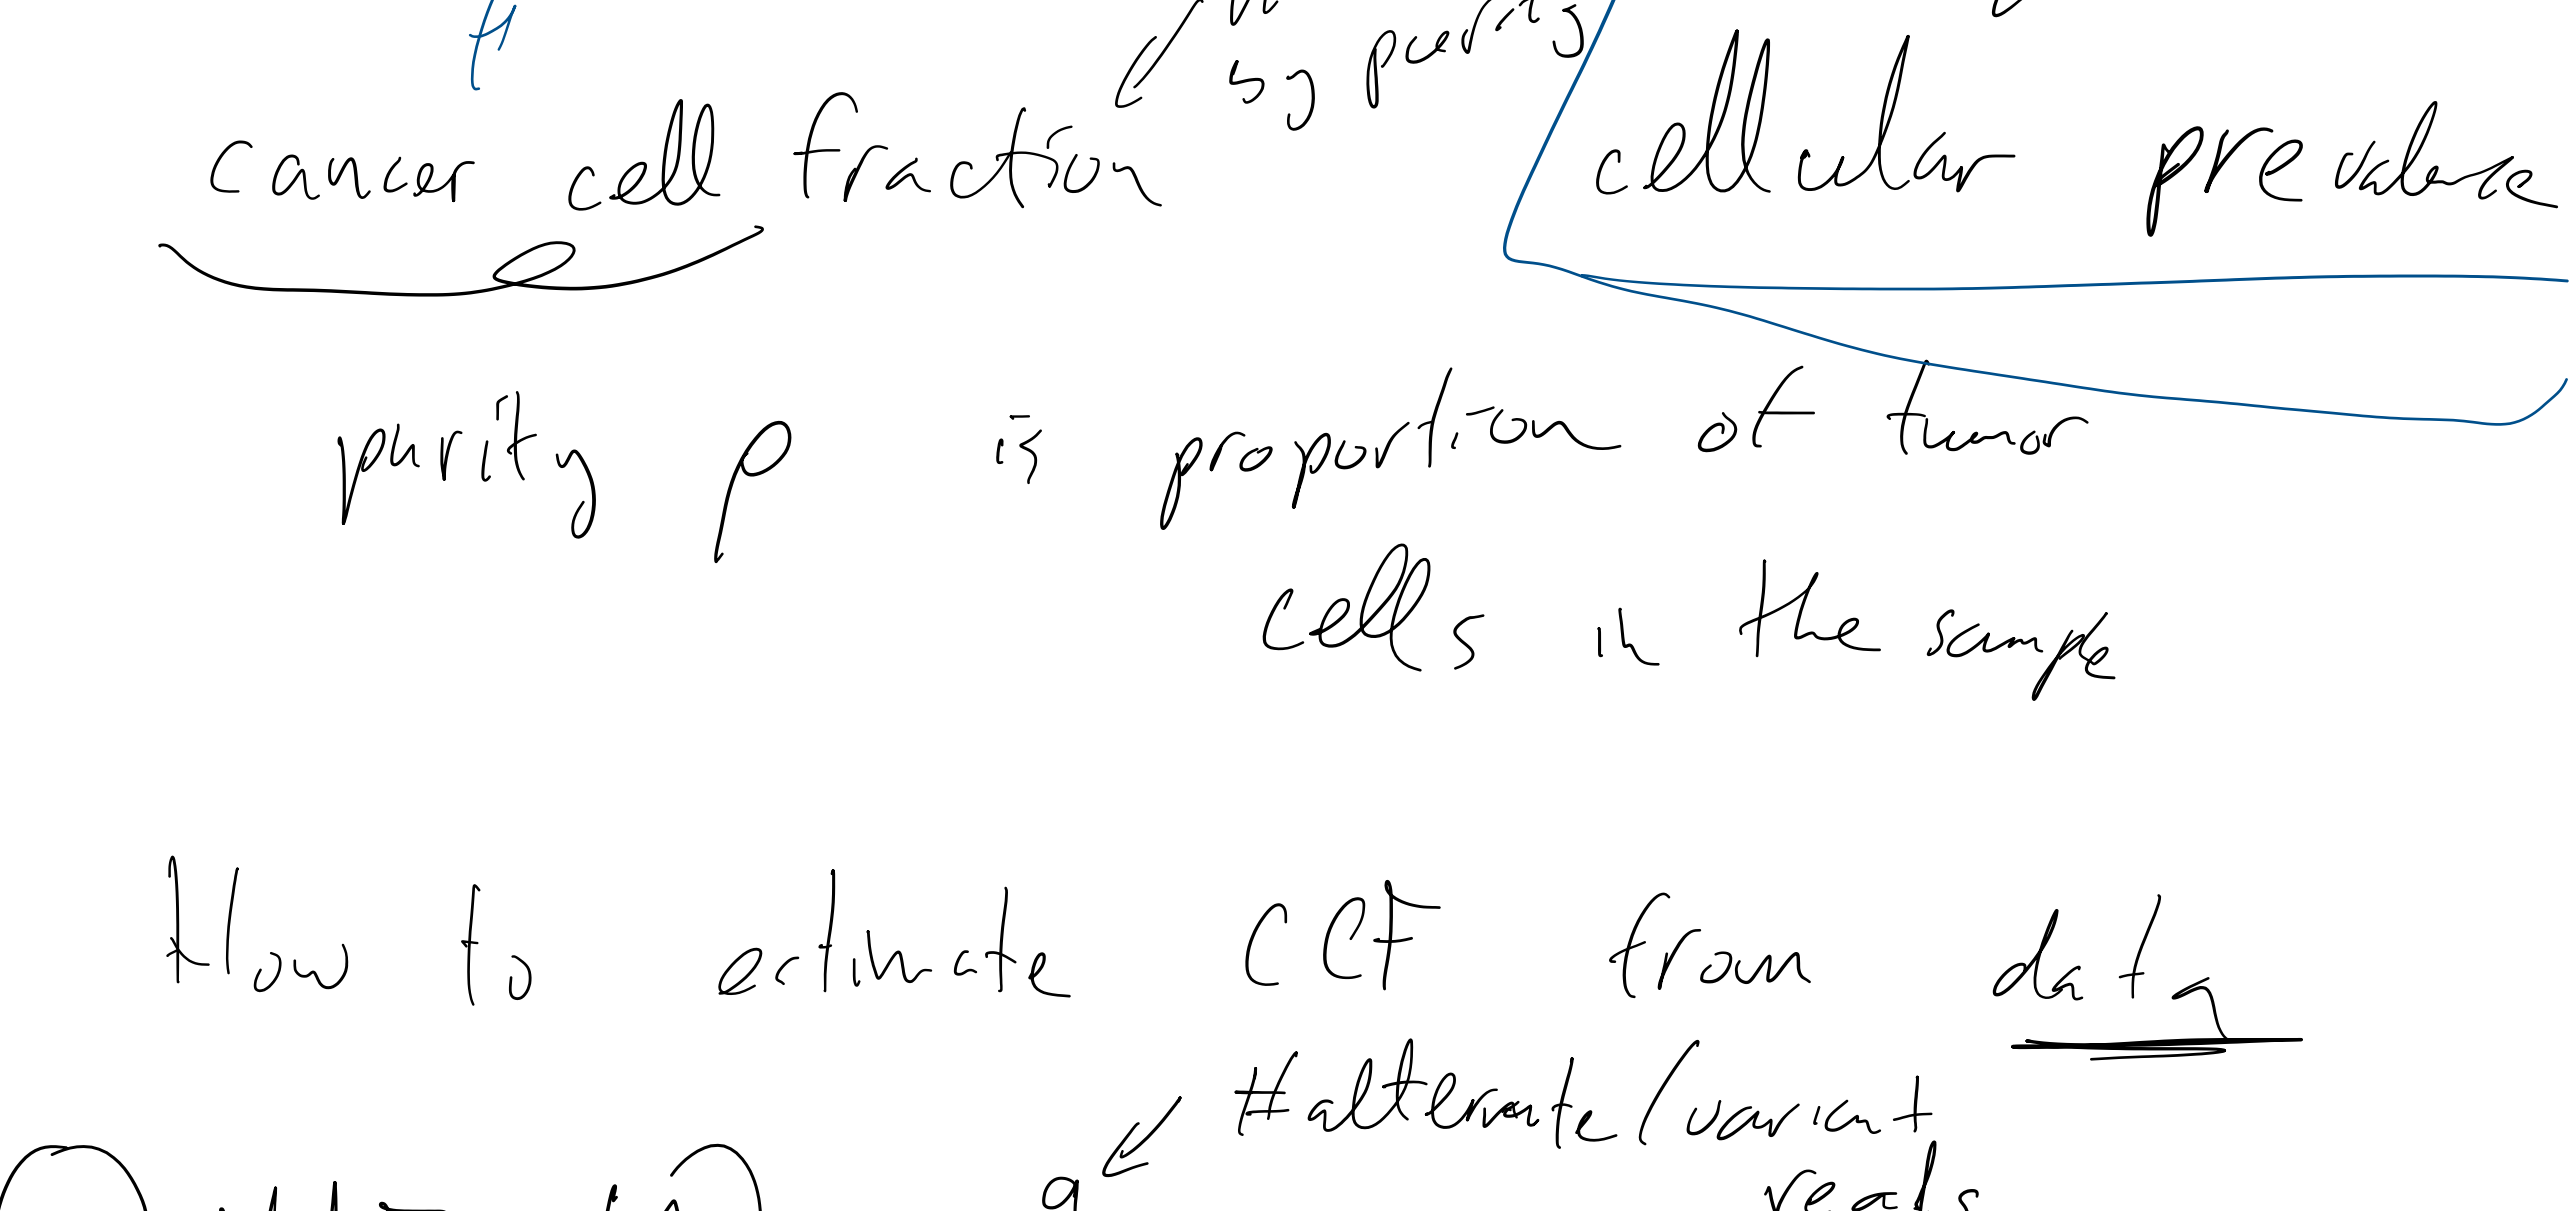 by purity
cancer cell fraction
cellular prevalence
purity ρ is proportion of tumor
cells in the sample
How to estimate CCF from data
#alternate/variant
reads
a